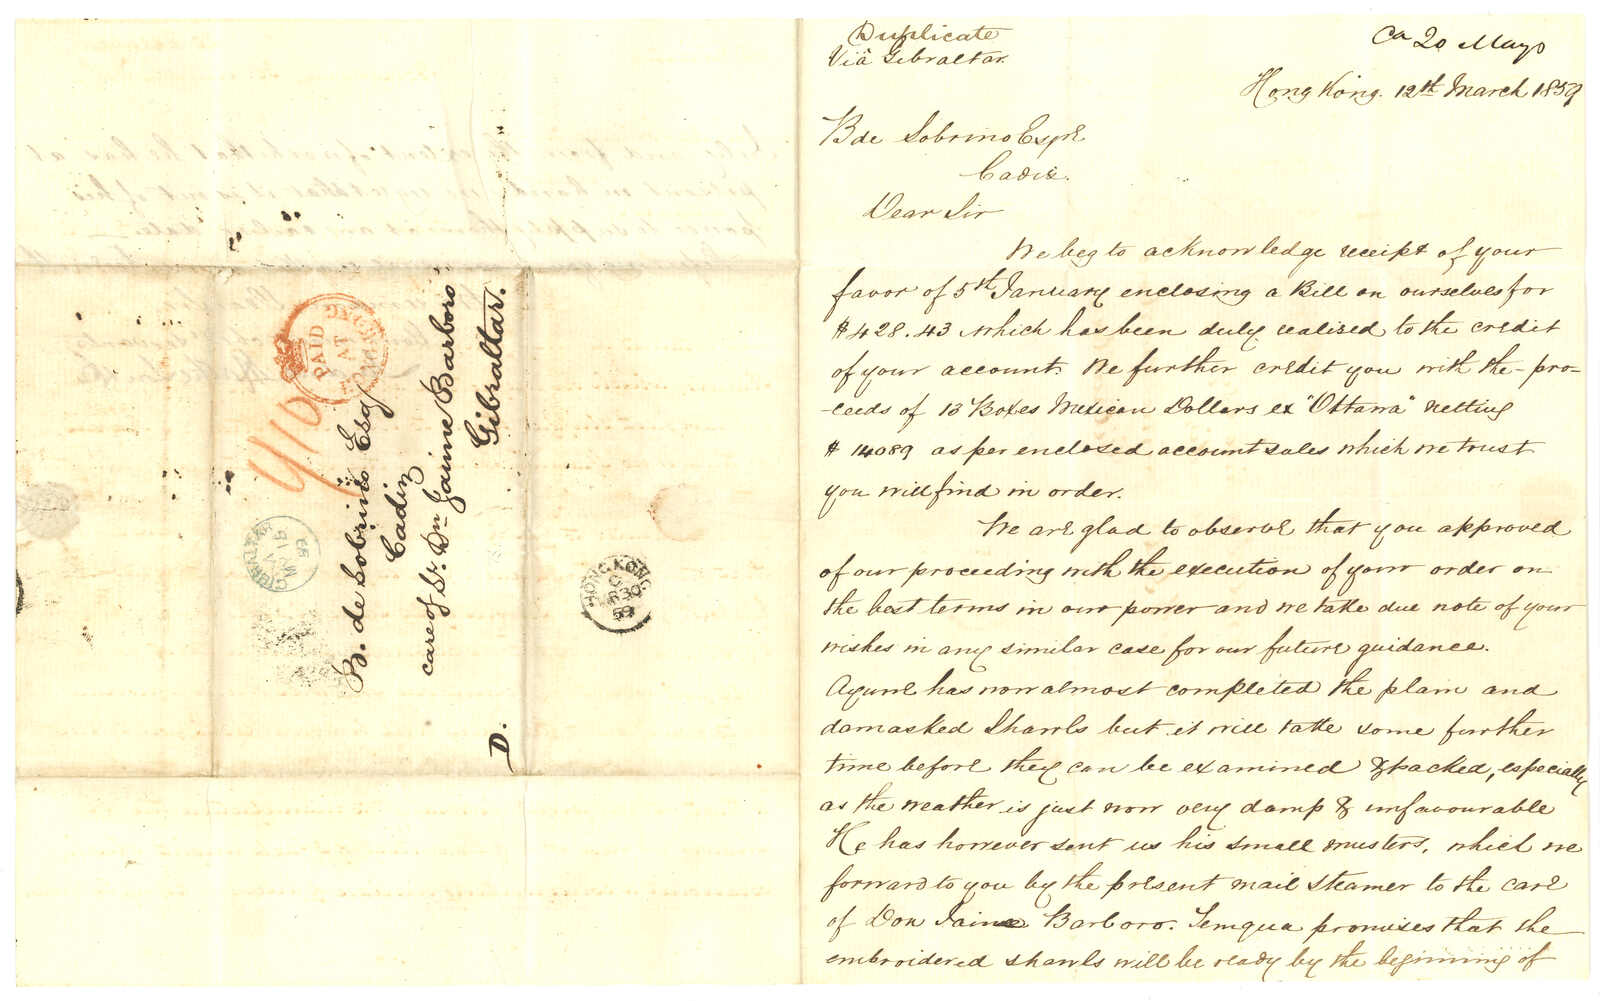 Duplicate
Viâ Gibraltar.
Ca 20 Mayo
Hong Kong. 12th March 1859
B de Sobrino Esqre
Cadiz.
Dear Sir
We beg to acknowledge receipt of your
favor of 5th January enclosing a Bill on ourselves for
$428.43 which has been duly realised to the credit
of your account. We further credit you with the pro-
-ceeds of 13 Boxes Mexican Dollars ex "Ottawa" netting
$ 14089 as per enclosed account sales which we trust
you will find in order.
We are glad to observe that you approved
of our proceeding with the execution of your order on
the best terms in our power and we take due note of your
wishes in any similar case for our future guidance.
has now almost completed the plain and
damasked Shawls but it will take some further
time before they can be examined & packed, especially
as the weather is just now very damp & unfavourable
He has however sent us his small musters, which we
forward to you by the present mail steamer to the care
of Don Jaime Barboro. promises that the
embroidered shawls will be ready by the beginning of
B. de Sobrino Esq
Cadiz
care of Sr. Dn Jaime Barboro
Gibraltar.
D.
PAID AT HONG KONG
GIBRALTAR
HONG KONG
C
30
59